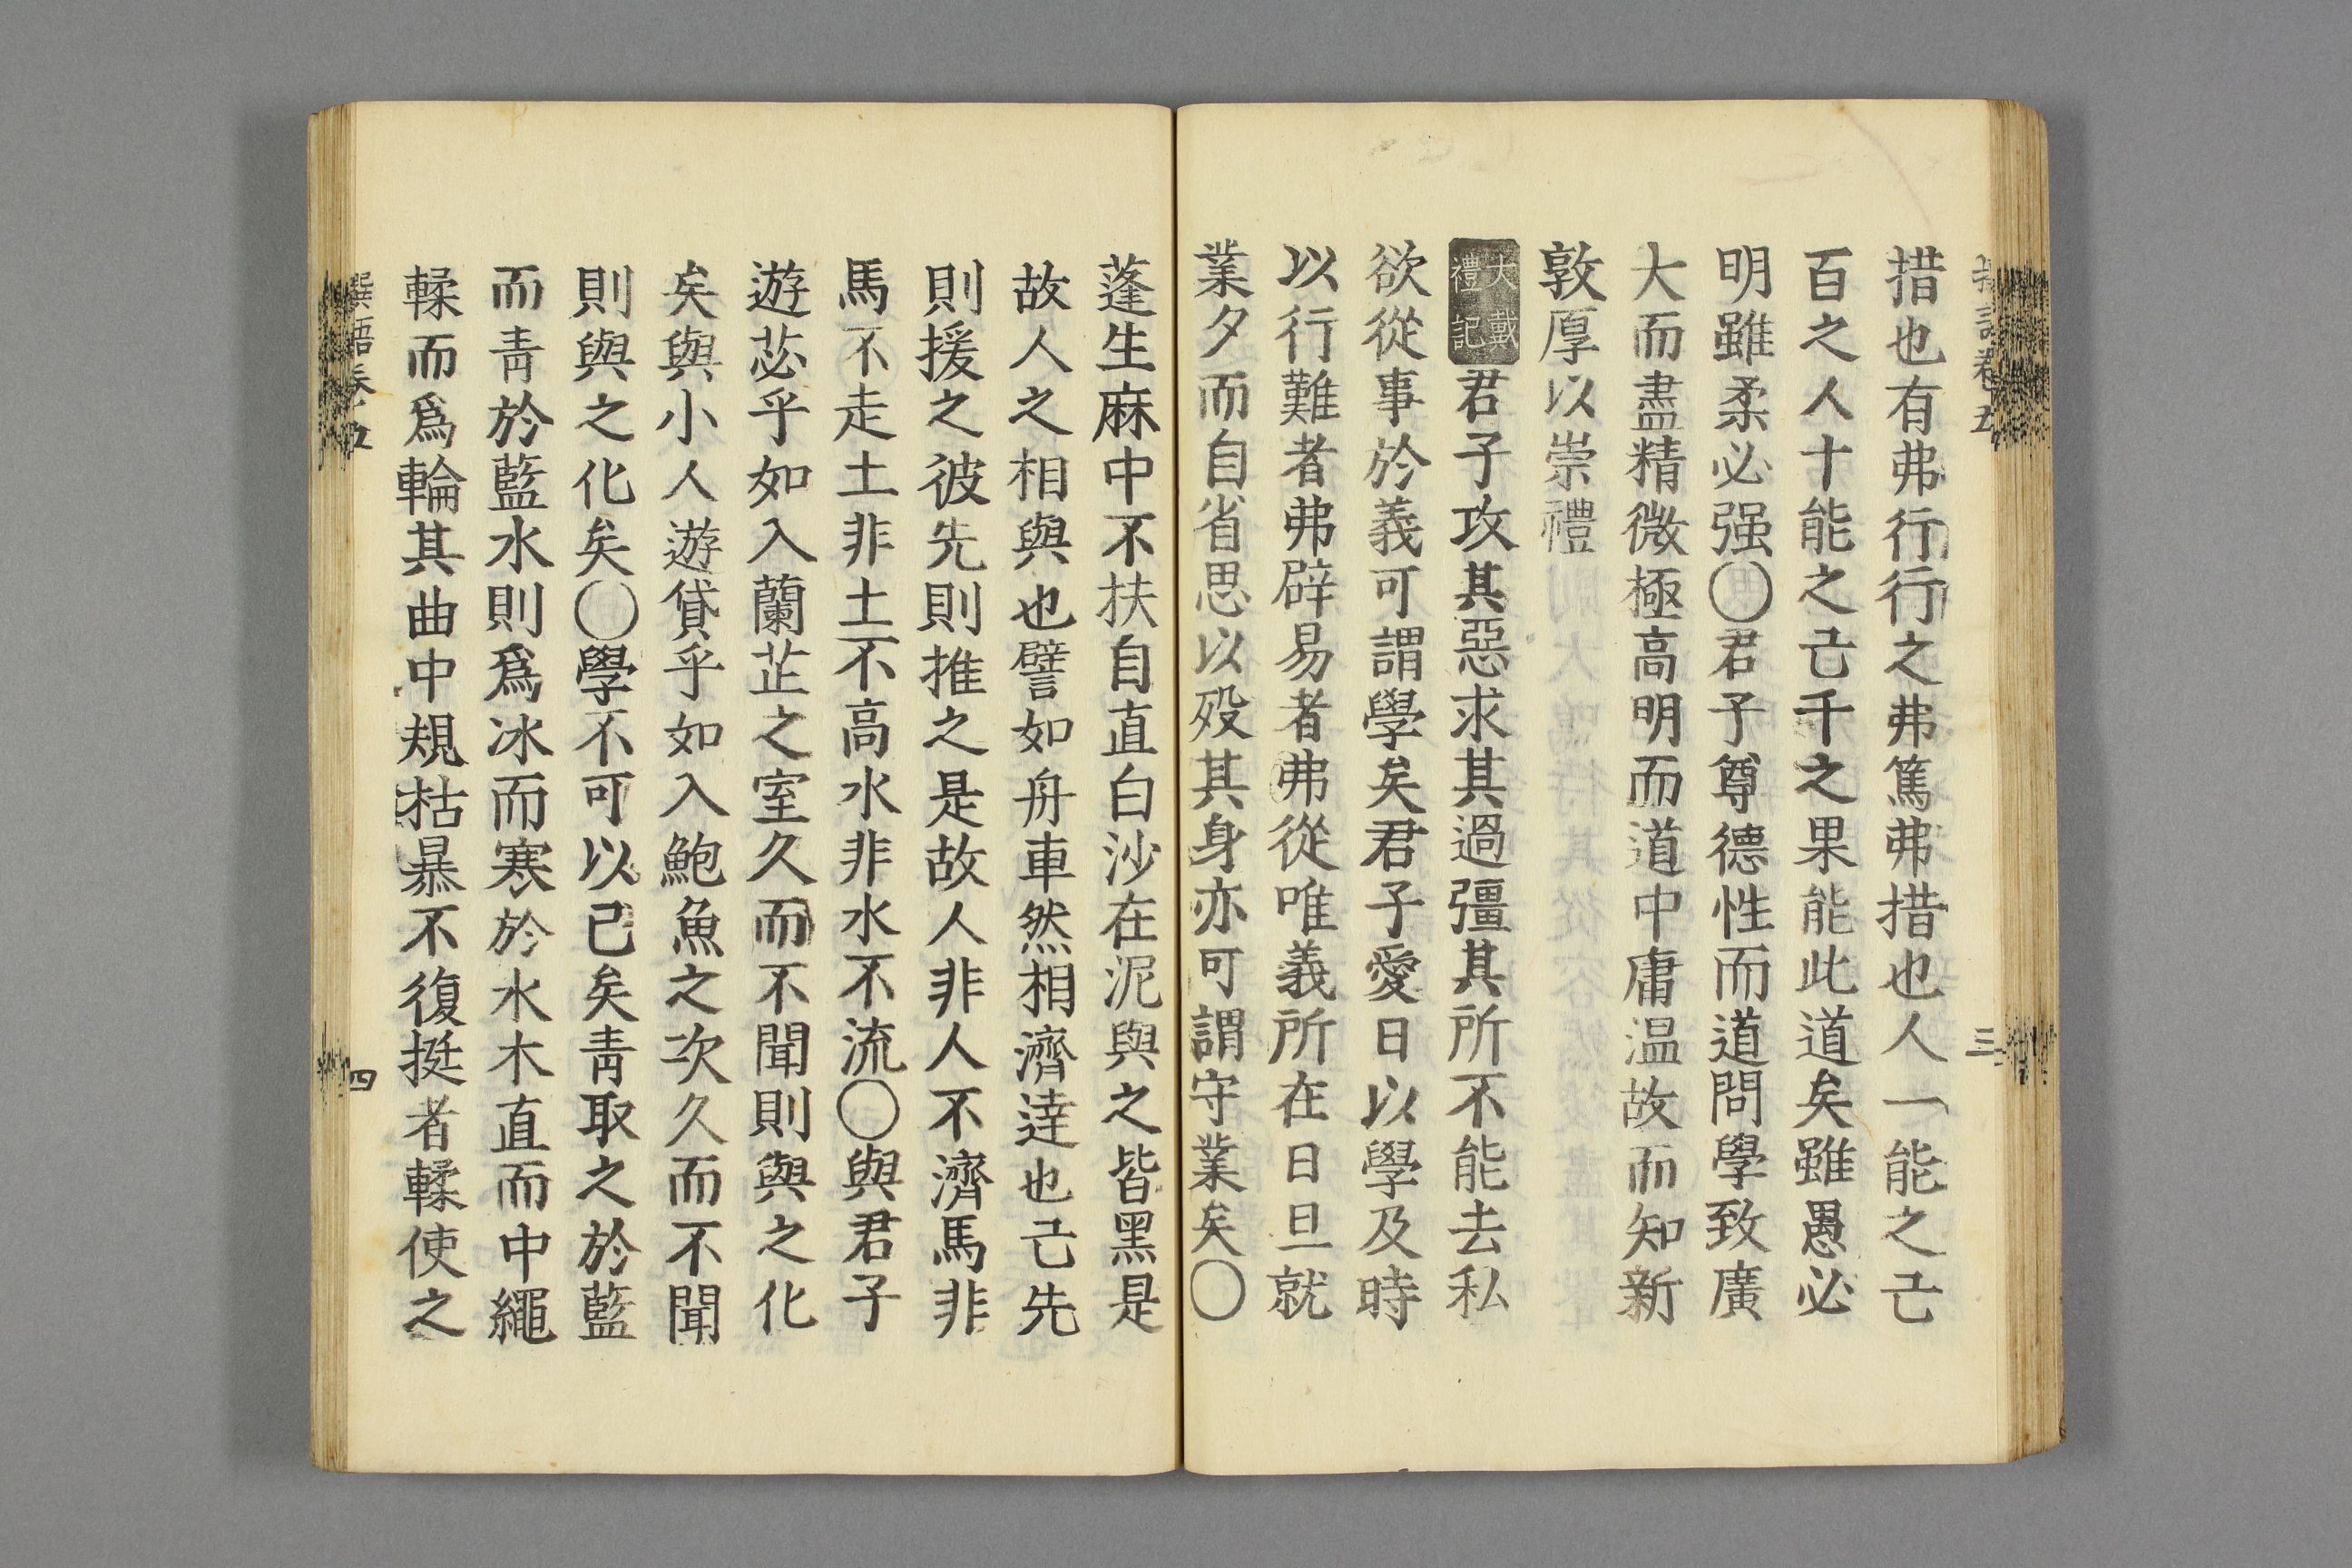 措也有弗行行之弗篤弗措也人一能之己
百之人十能之己千之果能此道矣雖愚必
明雖柔必强〇君子尊德性而道問學致廣
大而盡精微極高明而道中庸温故而知新
敦厚以崇禮
大戴禮記君子攻其惡求其過彊其所不能去私
欲從事於義可謂學矣君子愛日以學及時
以行難者弗辟易者弗從唯義所在日旦就
業夕而自省思以殁其身亦可謂守業矣〇
蓬生麻中不扶自直白沙在泥與之皆黑是
故人之相與也譬如舟車然相濟達也己先
則援之彼先則推之是故人非人不濟馬非
馬不走土非土不高水非水不流〇與君子
遊苾乎如入蘭芷之室久而不聞則與之化
矣與小人遊貸乎如入鮑魚之次久而不聞
則與之化矣〇學不可以已矣靑取之於藍
而靑於藍水則爲冰而寒於水木直而中繩
輮而爲輪其曲中規枯暴不復挺者輮使之
卷五
三
四